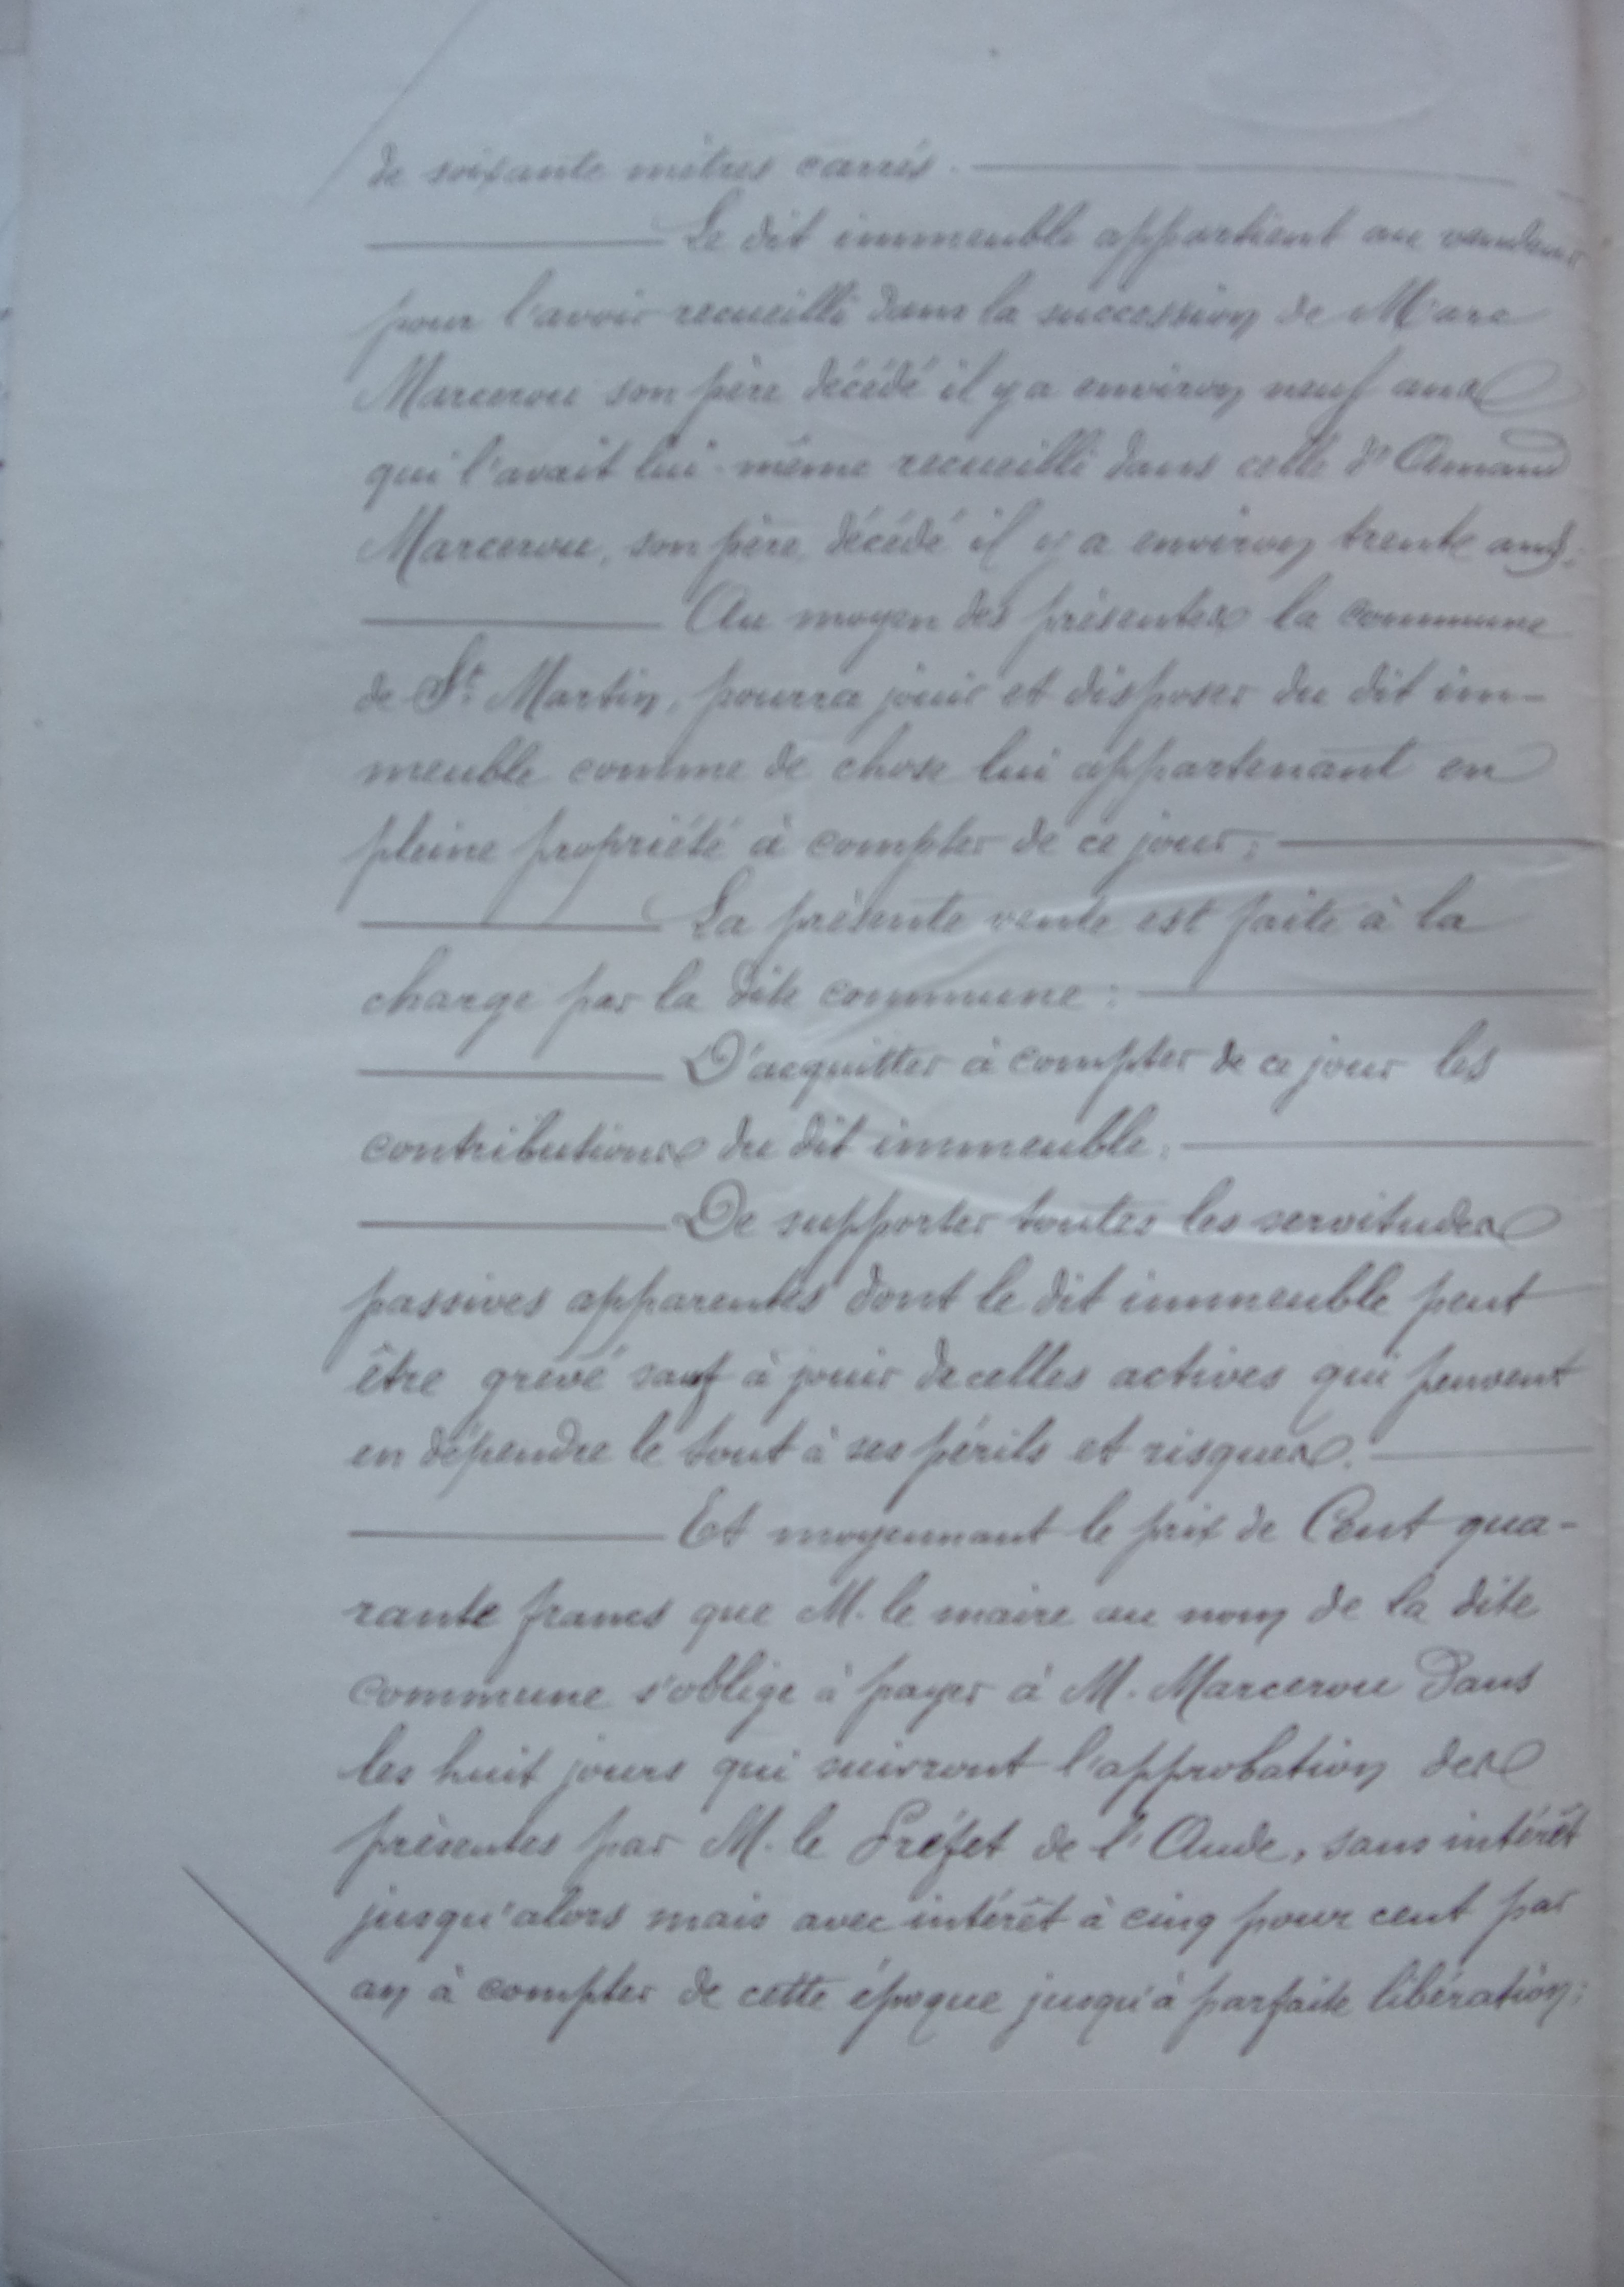 de soixante mètres carrés.
Le dit immeuble appartient au vendeur
pour l'avoir recueilli dans la succession de Marc
Marcerou son père décédé il y a environ neuf ans
qui l'avait lui-même recueilli dans celle d'Armand
Marcerou, son père, décédé il y a environ trente ans.
Au moyen des présentes la commune
de St Martin, pourra jouir et disposer du dit im-
meuble comme de chose lui appartenant en
pleine propriété à compter de ce jour;
La présente vente est faite à la
charge par la dite commune:
D'acquitter à compter de ce jour les
contributions du dit immeuble.
De supporter toutes les servitudes
passives apparentes dont le dit immeuble peut
être grevé sauf à jouir de celles actives qui peuvent
en dépendre le tout à ses périls et risques.
Et moyennant le prix de Cent qua-
rante francs que M. le maire au nom de la dite
commune s'oblige à payer à M. Marcerou dans
les huit jours qui suivront l'approbation des
présentes par M. le Préfet de l'Aude, sans intérêt
jusqu'alors mais avec intérêt à cinq pour cent par
an à compter de cette époque jusqu'à parfaite libération;